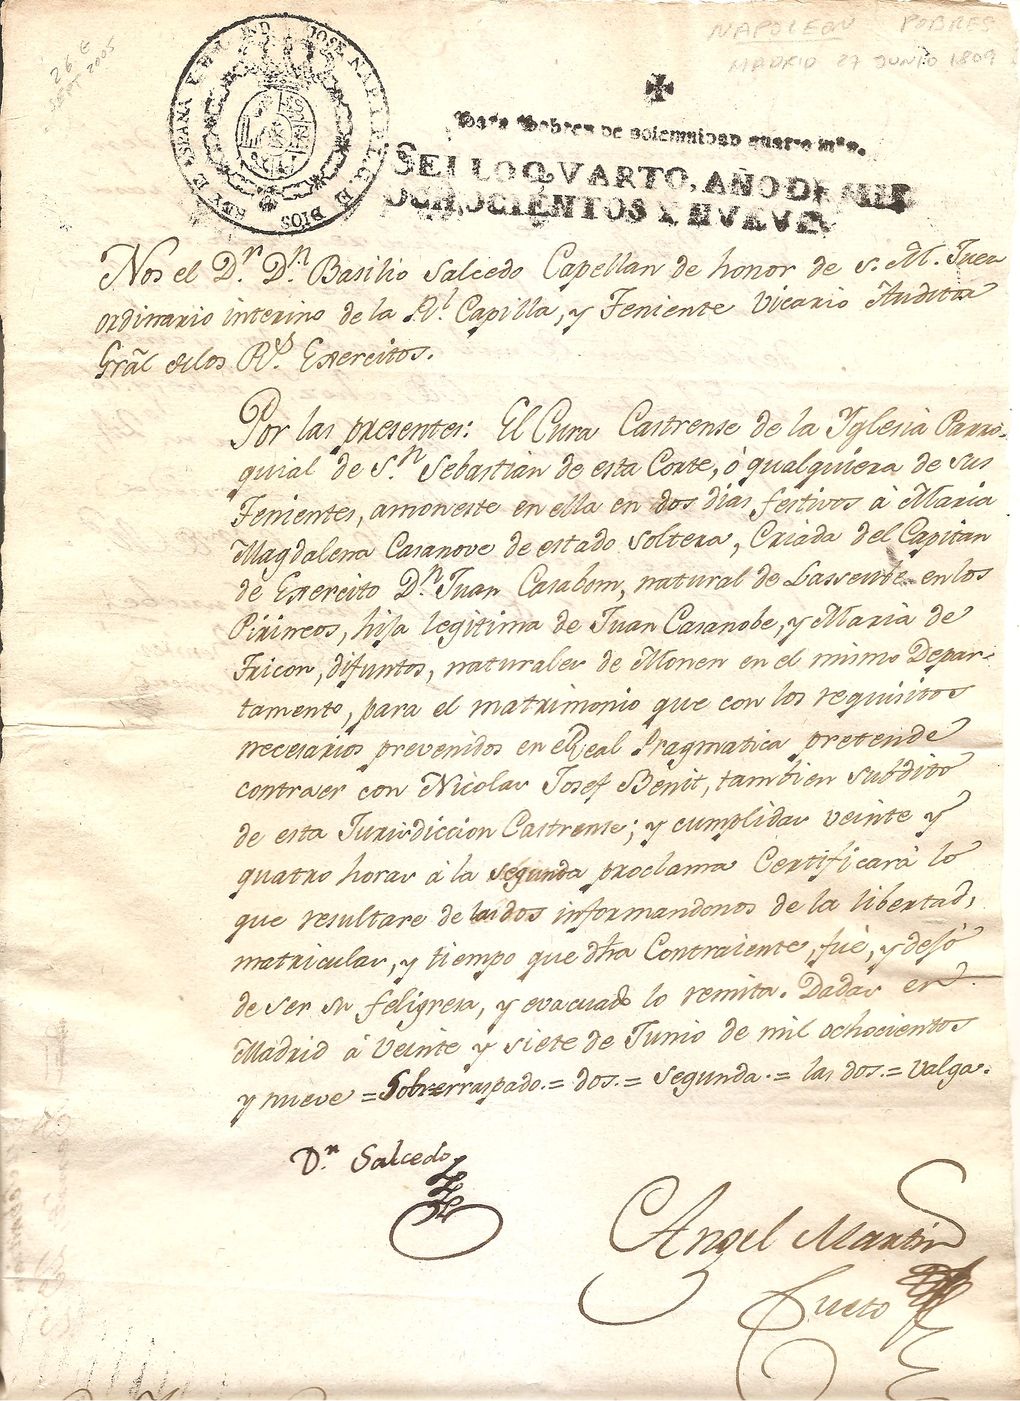 NAPOLEON POBRES
MADRID 27 JUNIO 1809
26 €
SEPT 2005
JOSE NAP. I. P. L. G. D. DIOS REY D. ESPAÑA Y D L IND
Para Pobres de solemnidad quatro mrs.
SELLO QVARTO, AÑO DE MIL
OCHOCIENTOS Y NUEVE.
Nos el D.r D.n Basilio Salcedo Capellan de honor de S. M. Juez
ordinario interino de la Rl. Capilla, y Teniente Vicario Auditor
Gral de los R.s Exercitos.
Por las presentes: El Cura Castrense de la Yglesia Parro-
quial de S.n Sebastian de esta Corte, ó qualquiera de sus
Tenientes, amoneste en ella en dos dias festivos à Maria
Magdalena Casanove de estado soltera, Criada del Capitan
de Exercito D.n Juan Casabom, natural de Lasseube en los
Pirineos, hija legitima de Juan Casanobe, y Maria de
Tricon, difuntos, naturales de Monen en el mismo Depar-
tamento, para el matrimonio que con los requisitos
necesarios prevenidos en el Real Pragmatica pretende
contraer con Nicolas Josef Benit, tambien subdito
de esta Jurisdiccion Castrense; y cumplidas veinte y
quatro horas à la segunda proclama Certificarà lo
que resultare de las dos informandonos de la libertad,
matriculas, y tiempo que dha Contraiente, fue, y dejó
de ser su feligresa, y evacuado lo remita. Dadas en
Madrid à veinte y siete de Junio de mil ochocientos
y nueve = Sobrerraspado. = dos. = segunda. = las dos. = valga.
D.n Salcedo
Angel Martin
Cueto